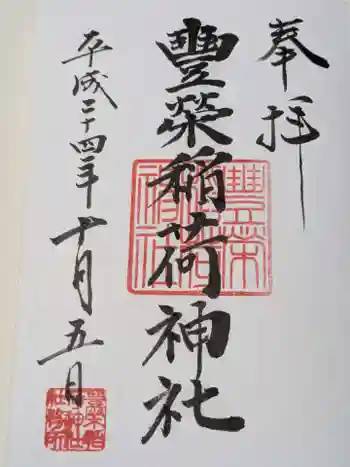 奉拝
豐榮稲荷神社
平成二十四年十月五日
豊栄稲荷神社
豊栄稲荷神社社務所